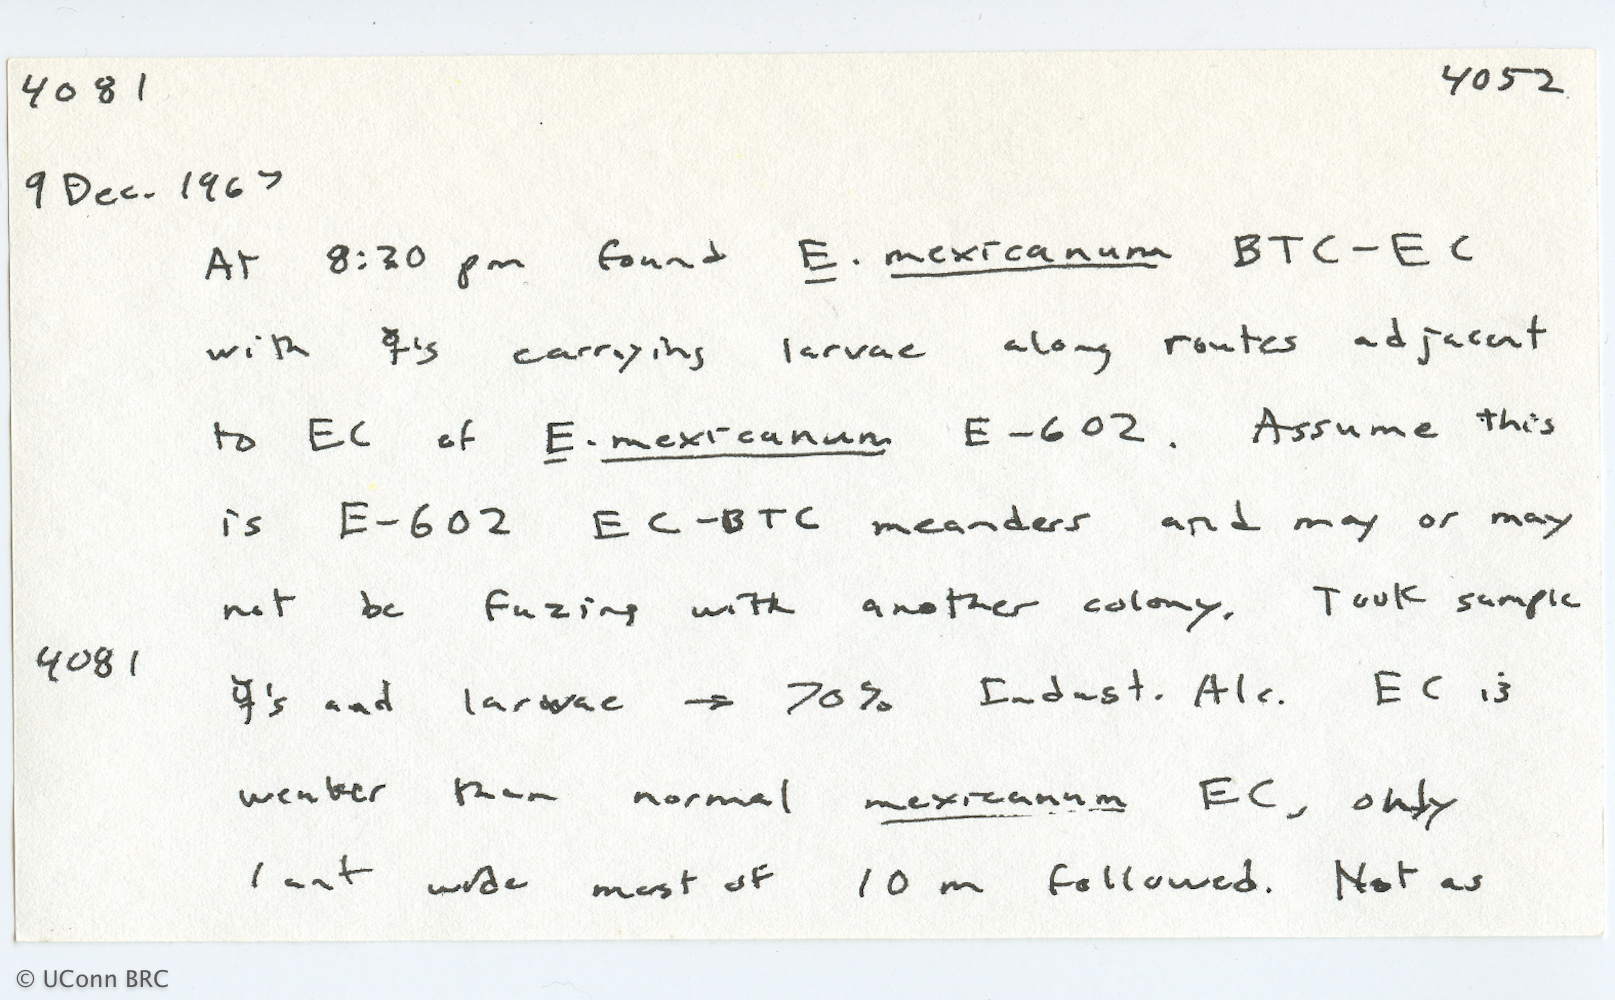 4081 4052
9 Dec. 1967
At 8:30 pm found E. mexicanum BTC-EC
with ☿'s carrying larvae along routes adjacent
to EC of E. mexicanum E-602. Assume this
is E-602 EC-BTC meanders and may or may
not be fuzing with another colony. Took sample
4081 ☿'s and larvae → 70% Indust. Alc. EC is
weaker than normal mexicanum EC, only
1 ant wide most of 10 m followed. Not as
© UConn BRC